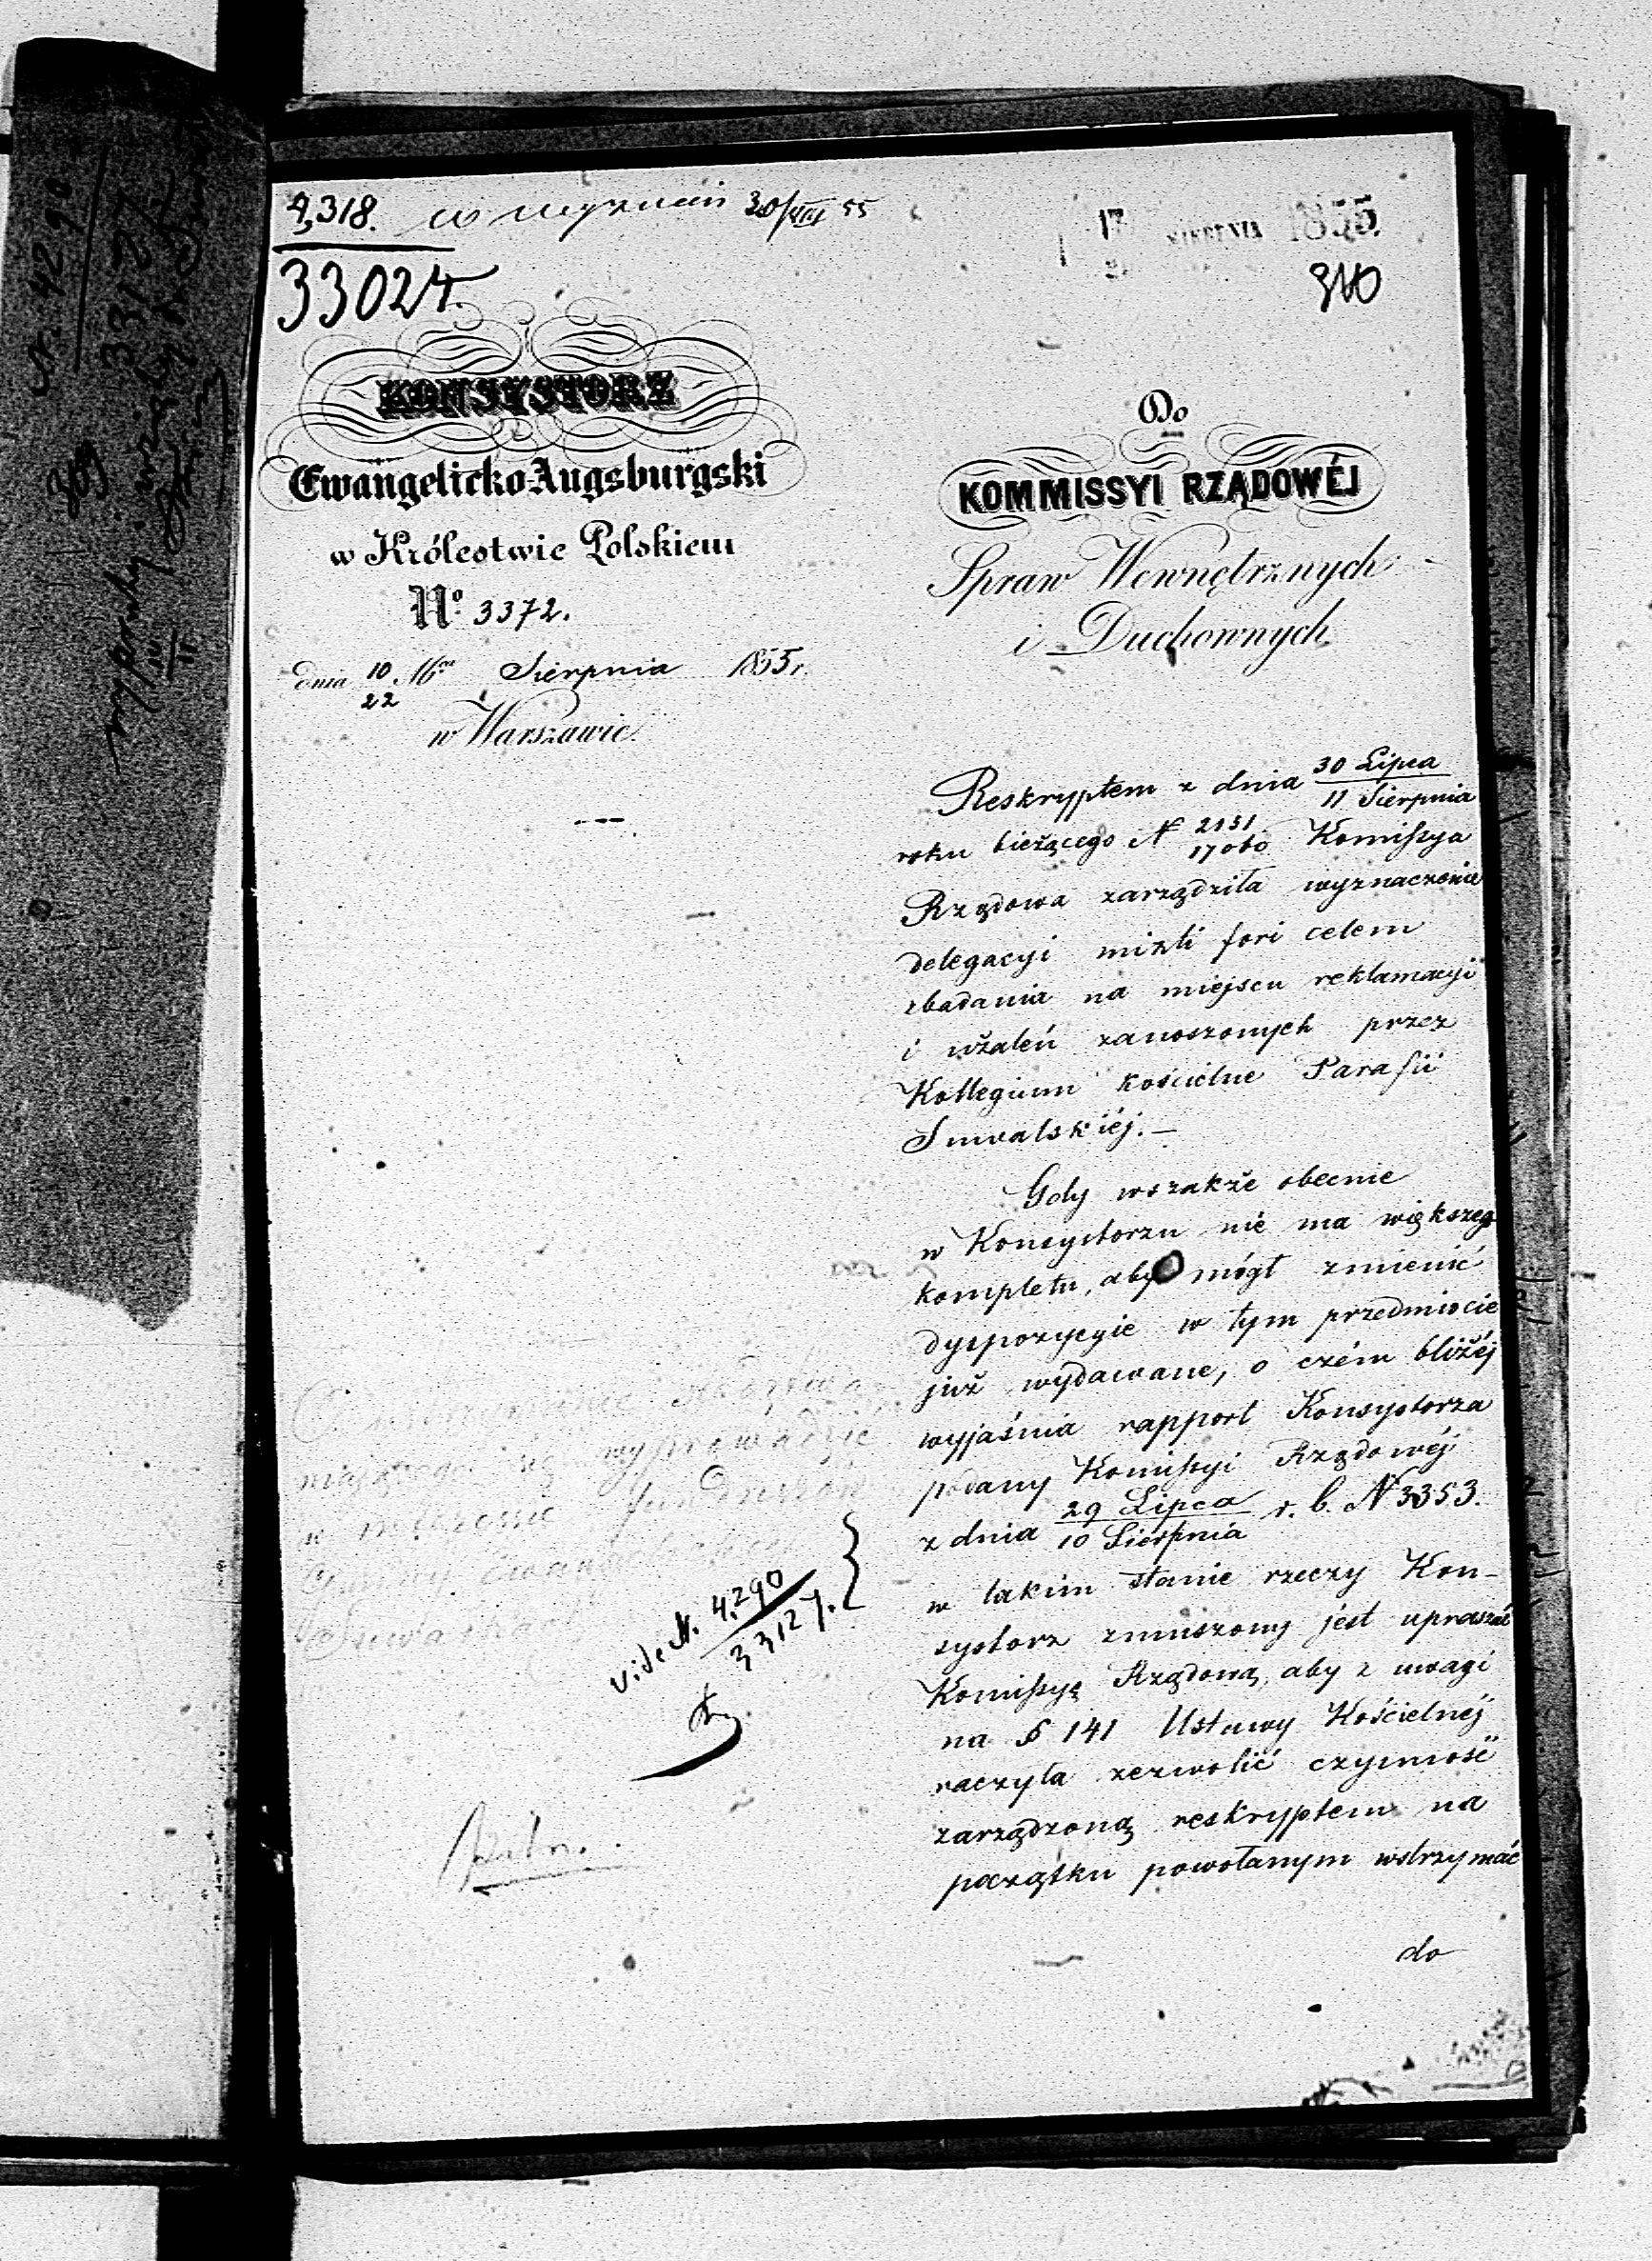 4,318. w 30/VIII 55
33024.
17 SIERPNIA 1855.
310
KONSYSTORZ
Ewangelicko-Augsburgski
w Królestwie Polskiem
No 3372.
dnia 10/22 Sierpnia 1855 r.
w Warszawie.
Do
KOMMISSYI RZĄDOWÉJ
Spraw Wewnętrznych
i Duchownych
Reskryptem z dnia 30 Lipca / 11 Sierpnia
roku bieżącego N 2131/17060 Komissya
Rządowa zarządziła wyznaczenie
delegacyi mixti fori celem
zbadania na miejscu reklamacyi
i użaleń zanoszonych przez
Kollegium kościelne Parafii
Suwalskiéj. —
Gdy wszakże obecnie
w Konsystorzu nie ma większego
kompletu, aby mógł zmienić
dyspozycyie w tym przedmiocie
już wydawane, o czém bliżéj
wyjaśnia rapport Konsystorza
podany Komissyi Rządowéj
z dnia 29 Lipca / 10 Sierpnia r. b. N 3353.
w takim stanie rzeczy Kon-
systorz zmuszony jest upraszać
Komissyą Rządową, aby z uwagi
na § 141 Ustawy Kościelnéj
raczyła zezwolić czynność
zarządzoną reskryptem na
początku powołanym wstrzymać
do
wyprowadzić
w
Suwałkach
vide N. 4.290
33127.
N. 4290
33127
309